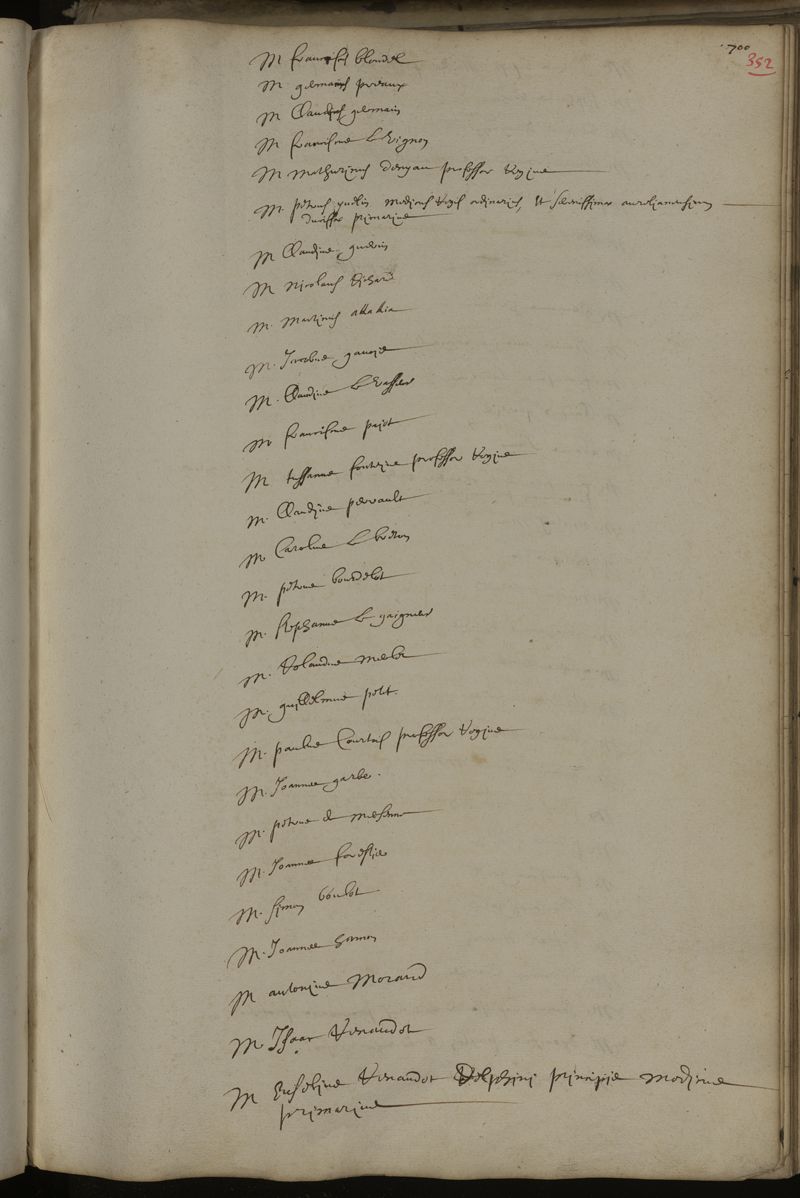 700
352
M franciscus blondel
M germanus preaux
M Claudius germain
M franciscus Le Vignon
M mathurinus denyau professor Regius
M petrus yvelin medicus Regis ordinarius, et serenissimae aurelianensium
ducissae primarius
M Claudius guerin
M nicolaus Richard
M. martinus akakia
M. Jacobus gavois
M. Claudius Le Vasseur
M franciscus pajot
M tussanus fontaine professor Regius
M. Claudius perrault
M Carolus Le breton
M. petrus bourdelot
M. stephanus Le gaigneur
M. Rolandus merlet
M. guillelmus petit.
M. paulus Courtois professor Regius
M. Joannes garbe.
M. petrus de mersenne
M. Joannes forestier
M. simon boulot
M. Joannes hamon
M antonius Morand
M. Isaac Renaudot
M Eusebius Renaudot Delphini principis medicus
primarius